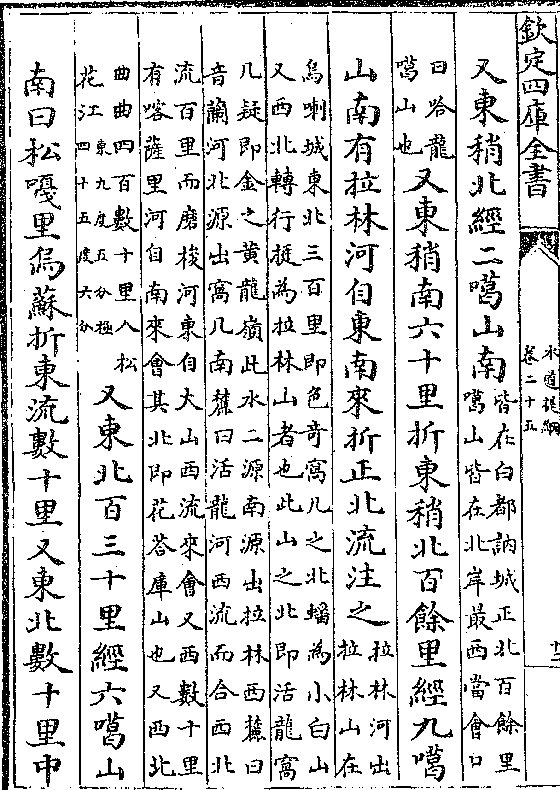 欽定四庫全書
水道提綱
卷二十五
又東稍北經二噶山南皆在白都訥城正北百餘里
噶山皆在北岸最西當會口
曰哈龍
噶山也又東稍南六十里折東稍北百餘里經九噶
山南有拉林河自東南來折正北流注之拉林河出
拉林山在
烏喇城東北三百里即色竒窩几之北蟠為小白山
又西北轉行挺為拉林山者也此山之北即活龍窩
几疑即金之黄龍嶺此水二源南源出拉林西麓曰
音蘭河北源出窩几南麓曰活龍河西流而合西北
流百里而磨梭河東自大山西流來會又西數十里
有喀薩里河自南來會其北即花荅庫山也又西北
曲曲四百數十里入松
花江東九度五分極
四十五度六分又東北百三十里經六噶山
南曰松嗄里烏蘇折東流數十里又東北數十里中